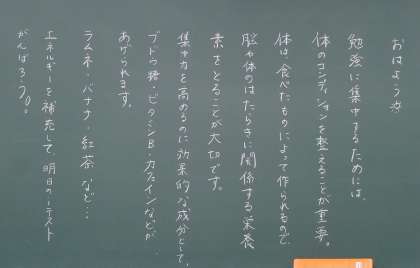 おはよう☆
勉強に集中するためには、
体のコンディションを整えることが重要。
体は、食べたものによって作られるので、
脳や体のはたらきに関係する栄養
素をとることが大切です。
集中力を高めるのに効果的な成分として、
ブドウ糖・ビタミンB・カフェインなどが
あげられます。
ラムネ・バナナ・紅茶 など…
エネルギーを補充して、明日のテスト
がんばろう。